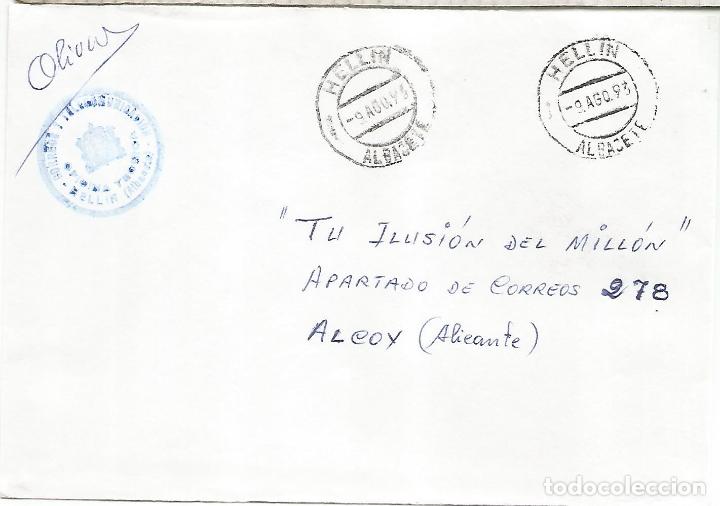 Oliver
HELLIN
-9 AGO. 93
ALBACETE
HELLIN
-9 AGO. 93
ALBACETE
HELLIN (Albacete)
"TU ILUSIÓN DEL MILLÓN"
APARTADO DE CORREOS 278
ALCOY (Alicante)
todocoleccion.net